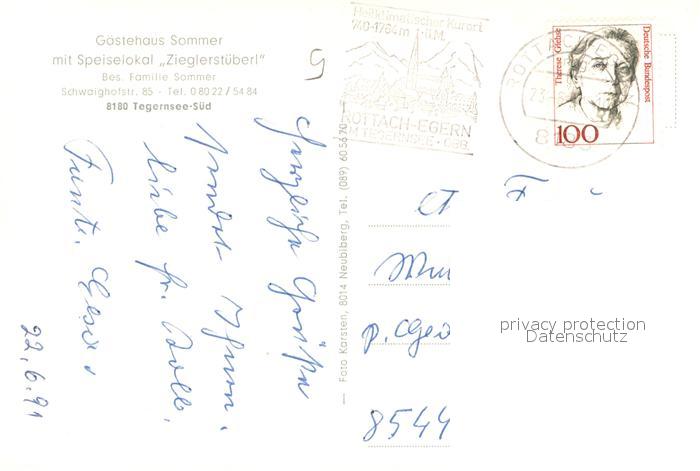 Gästehaus Sommer
mit Speiselokal „Zieglerstüberl"
Bes. Familie Sommer
Schwaighofstr. 85 - Tel. 0 80 22 / 54 84
8180 Tegernsee-Süd
5
Heilklimatischer Kurort
740-1764m ü.M.
ROTTACH-EGERN
AM TEGERNSEE · OBB.
ROTTACH
23
81
Therese Giehse
Deutsche Bundespost
100
Herzliche Grüße
sendet Ihnen,
liebe Fr.
22.6.91
— Foto Karsten, 8014 Neubiberg, Tel. (089) 60 56 70
8544
privacy protection
Datenschutz